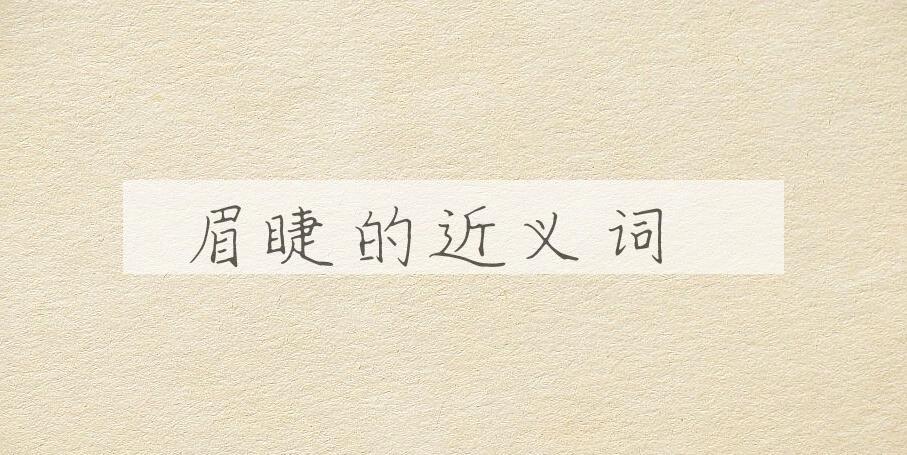 眉睫的近义词